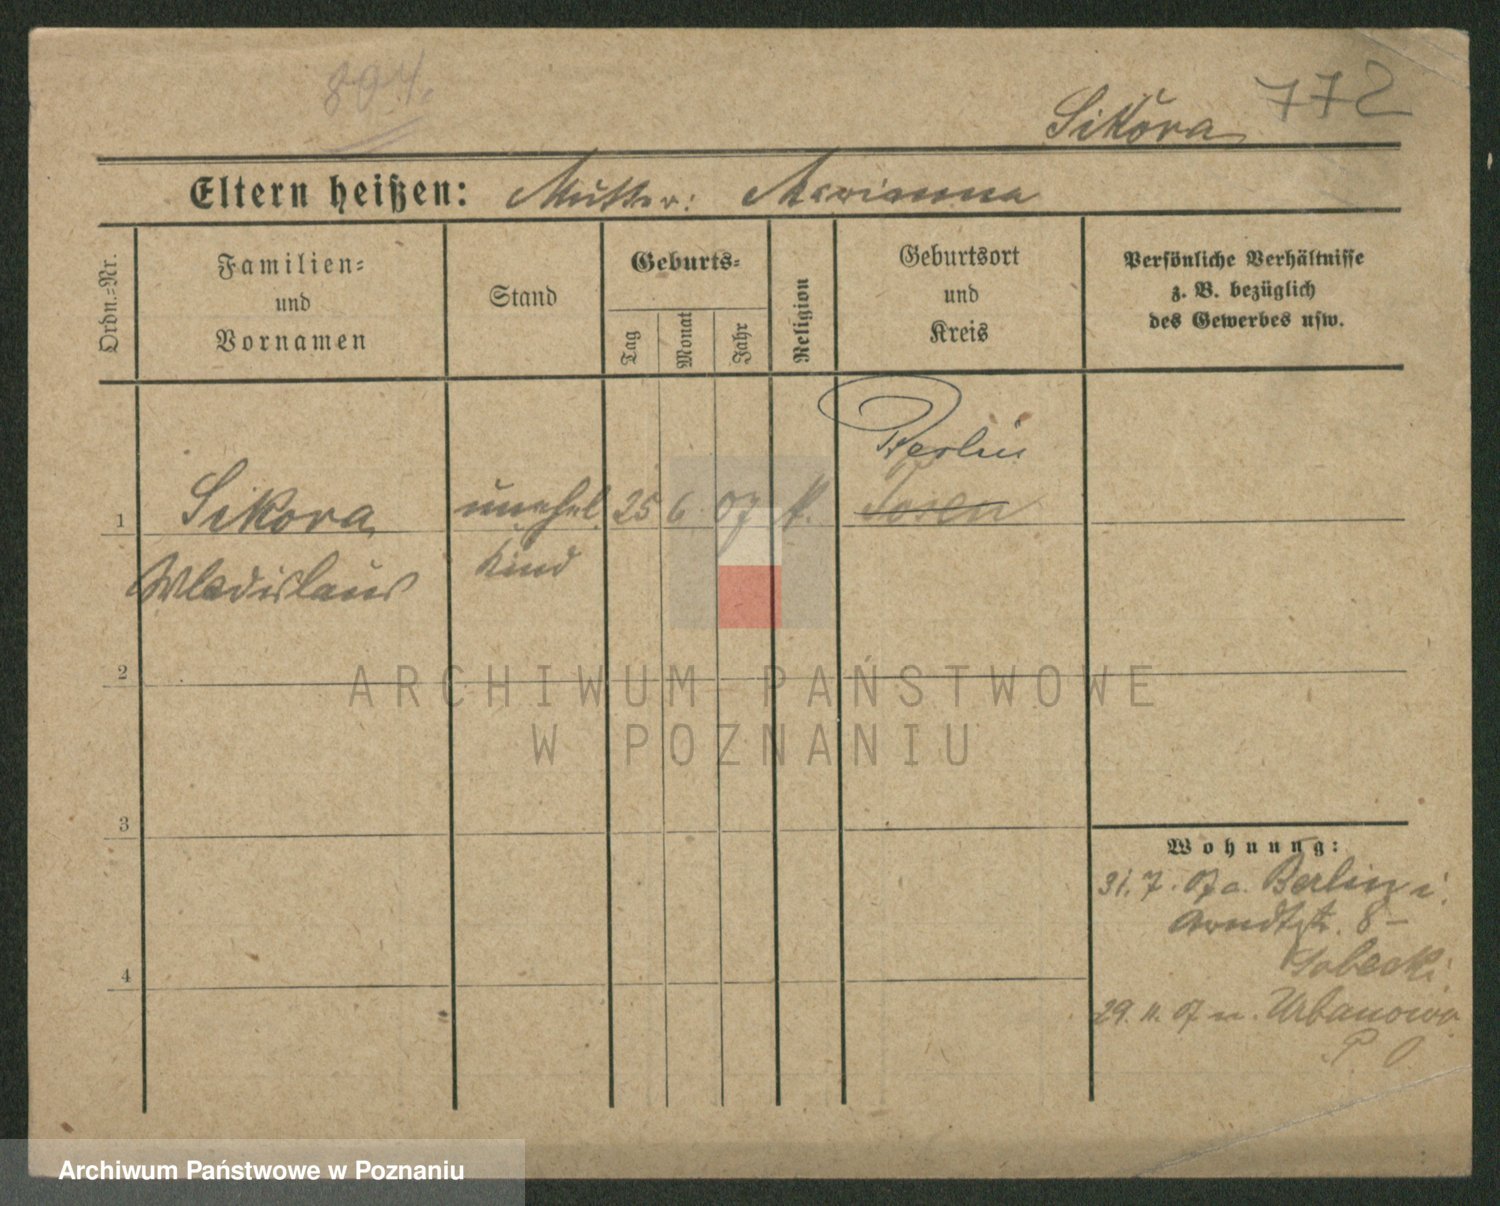 894.
772
Sikora
Eltern heißen: Mutter: Marianna
Ordn.-Nr.
Familien-
und
Vornamen
Stand
Geburts-
Tag
Monat
Jahr
Religion
Geburtsort
und
Kreis
Persönliche Verhältnisse
z. B. bezüglich
des Gewerbes usw.
Berlin
1 Sikora unehel. 25 6 07 k. Posen
Wladislaus Kind
2
3
4
Wohnung:
31. 7. 07 a. Berlin i.
Arndtstr. 8-
29. 11. 07 n. Urbanowo
ARCHIWUM PAŃSTWOWE
W POZNANIU
Archiwum Państwowe w Poznaniu